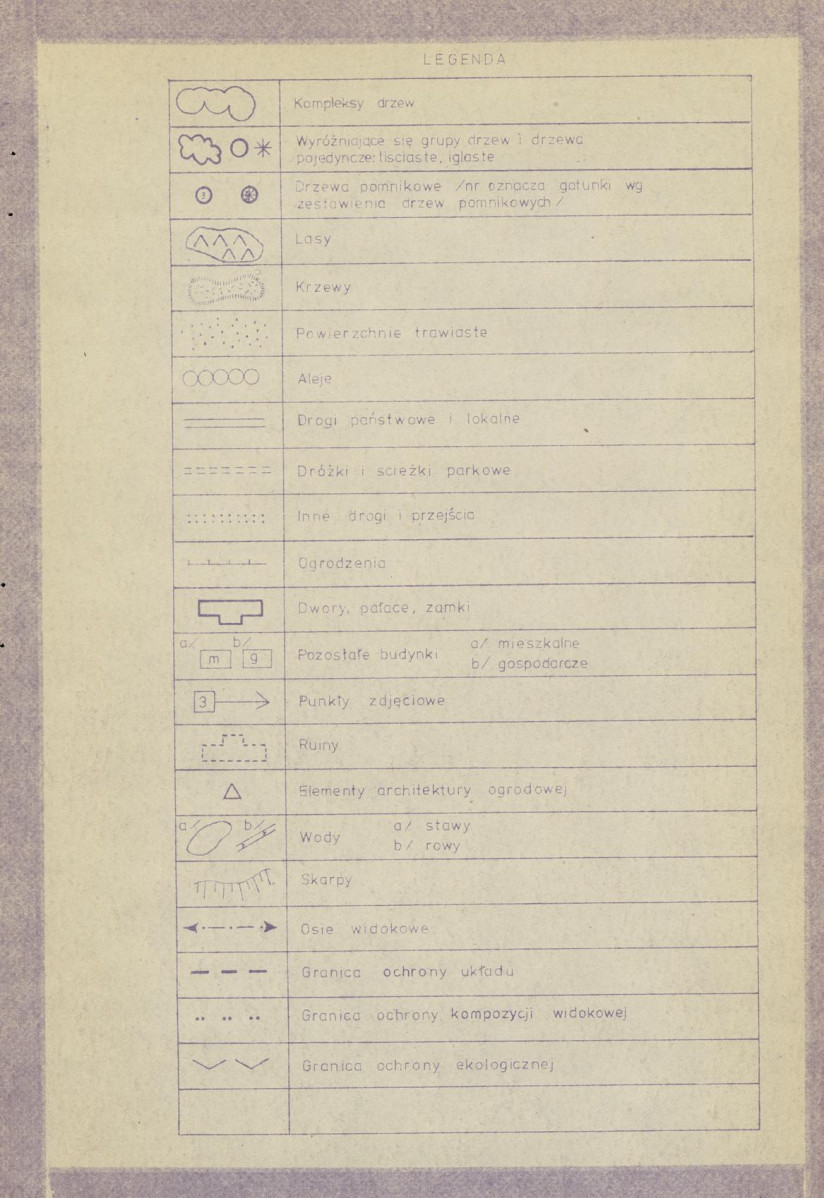 LEGENDA
Kompleksy drzew
Wyróżniające się grupy drzew i drzewa
pojedyncze: liściaste, iglaste
Drzewa pomnikowe /nr oznacza gatunki wg
zestawienia drzew pomnikowych/
Lasy
Krzewy
Powierzchnie trawiaste
Aleje
Drogi państwowe i lokalne
Dróżki i scieżki parkowe
Inne drogi i przejścia
Ogrodzenia
Dwory, pałace, zamki
a/ b/
m g
Pozostałe budynki a/ mieszkalne
b/ gospodarcze
3 Punkty zdjęciowe
Ruiny
Elementy architektury ogrodowej
a/ b/
Wody a/ stawy
b/ rowy
Skarpy
Osie widokowe
Granica ochrony układu
Granica ochrony kompozycji widokowej
Granica ochrony ekologicznej